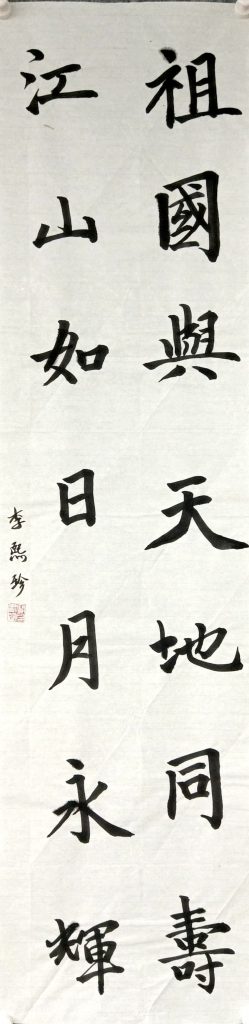 祖國與天地同壽
江山如日月永輝
李熙珍